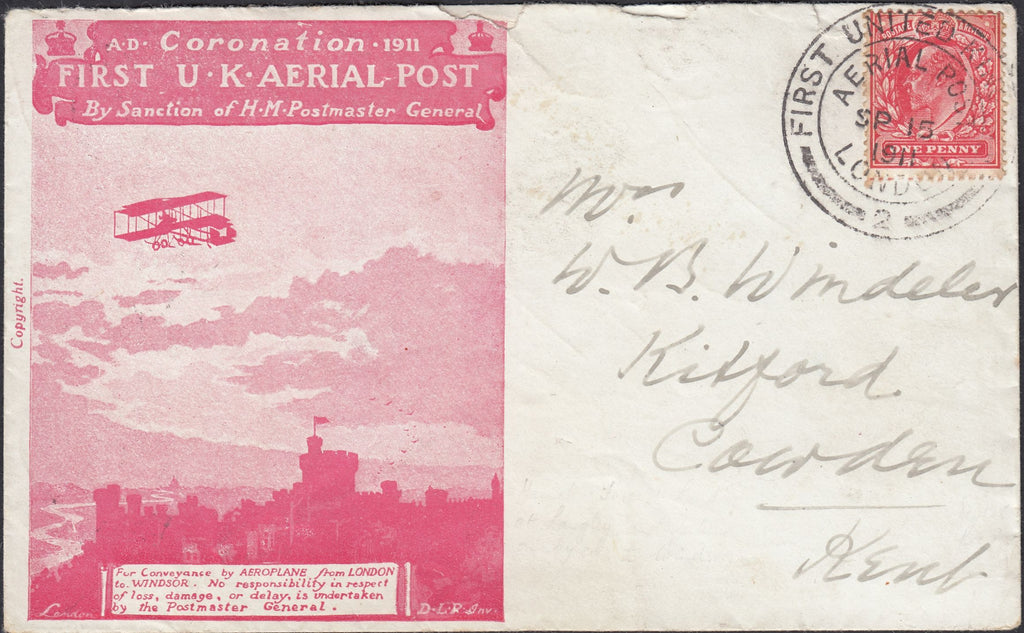 A.D. Coronation. 1911
FIRST U.K. AERIAL POST
By Sanction of H.M. Postmaster General
Copyright.
For Conveyance by AEROPLANE from LONDON
to WINDSOR. No responsibility in respect
of loss, damage, or delay, is undertaken
by the Postmaster General.
London
D.L.R. Inv.
FIRST UNITED
AERIAL POST
SP 15
1911
LONDON
2
ONE PENNY
Mrs
W. B. Windeler
Kitford
Cowden
Kent